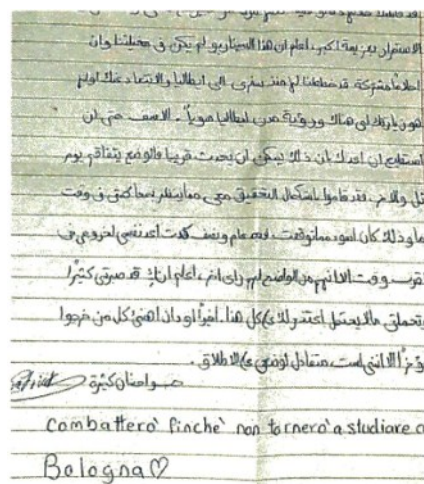 الاستمرار بعزيمة أكبر، أعلم ان هذا السيناريو لم يكن في مخيلتنا وان
احلامًا مشتركة قد خططنا لها منذ سفري الى ايطاليا والابتعاد عنك اولم
هون زيارتك لي هناك ورؤية مدن ايطاليا سوياً. الاسف حتى لن
استطيع ان اعدك بان ذلك يمكن ان يحدث قريبا فالوضع يتفاقم يوم
تل والاخر. فقد قاموا باستكمال التحقيق معي مما ينذر بمحاكمتي في وقت
ما وذلك كان اسود مما توقعت. فبعد عام ونصف كنت أعد نفسي لخروجي في
اقرب وقت الا انهم من الواضح لهم رأي اخر، أعلم انك قد صبرتي كثيرًا
وتحملتي مالا يحتمل اعتذر لك على كل هذا. أخيرًا اود ان اهنئ كل من خرجوا
مؤخرًا الا انني لست متفائل لوضعي على الاطلاق.
احضان كثيرة
combatterò finchè non tornerò a studiare a
Bologna♡